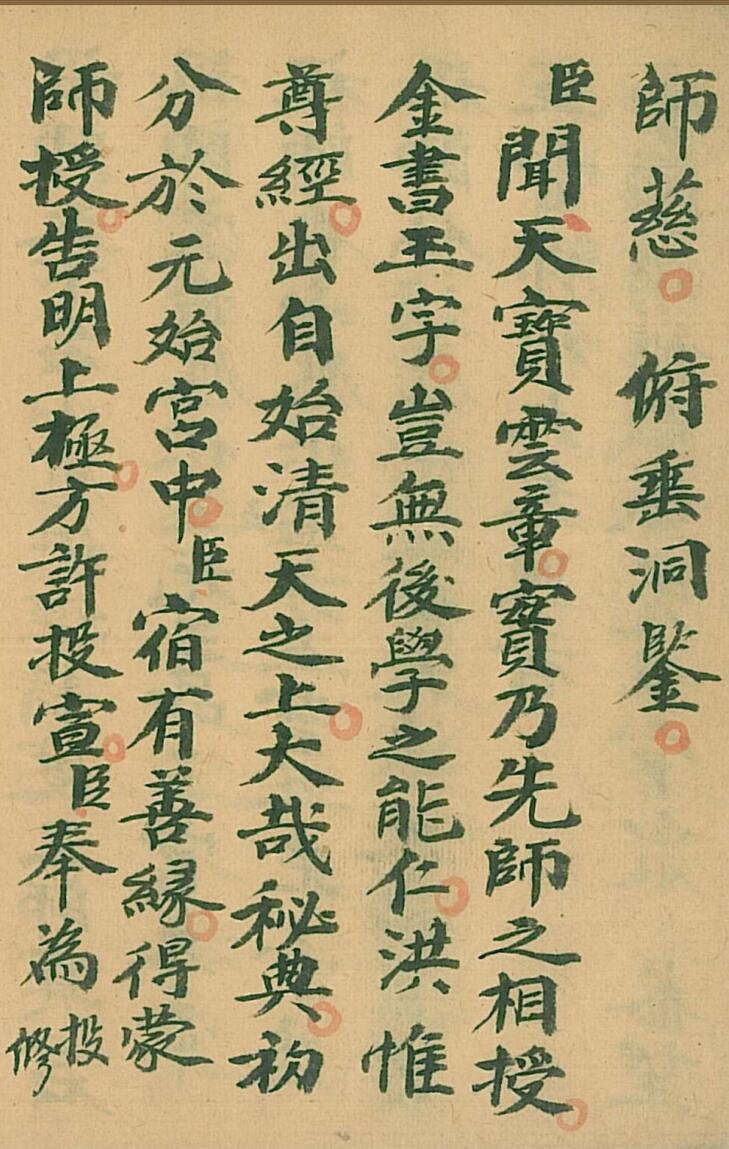 師慈。俯垂洞鑒。
臣聞天寶雲章。實乃先師之相授。
金書玉字。豈無後學之能仁。洪惟
尊經。出自始清天之上。大哉秘典。初
分於元始宮中。臣宿有善縁。得蒙
師授。告明上極。方許投宣。臣奉為投修